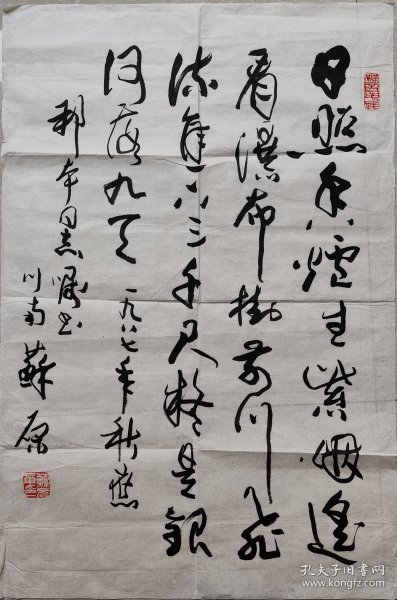 日照香爐生紫烟遙
看瀑布掛前川飛
流直下三千尺疑是銀
河落九天 一九八七年秋
同志嘱书
川南 蘇
孔夫子旧书网
www.kongfz.com